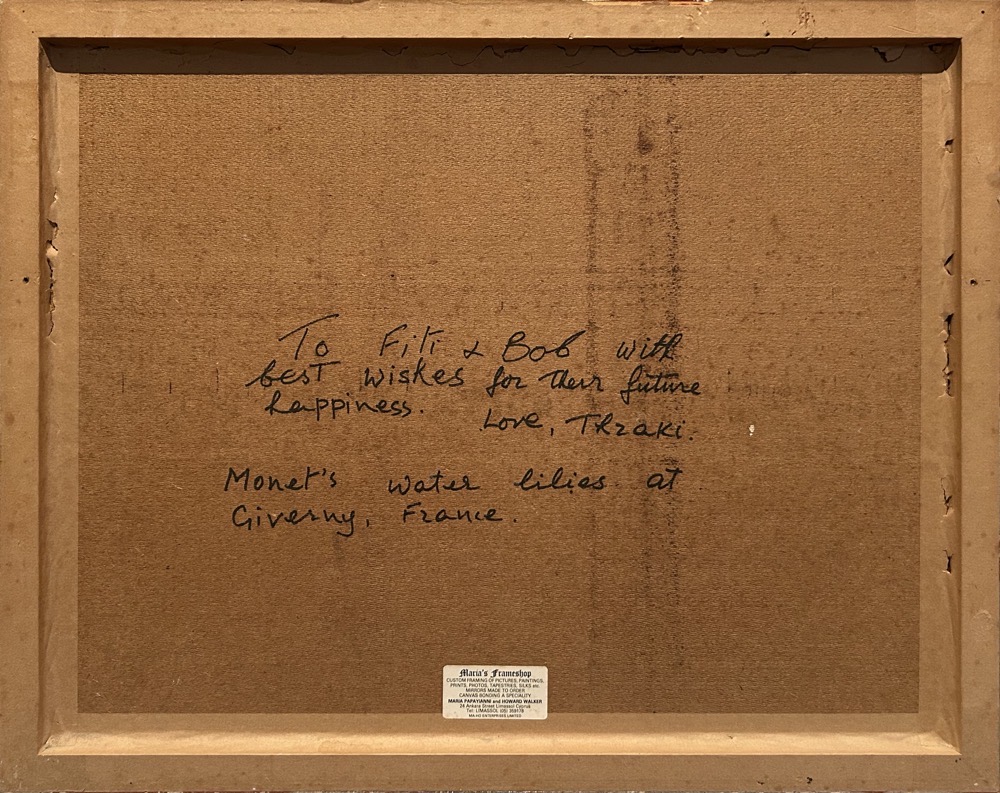 To Fiti & Bob with
best wishes for their future
happiness.
Love, Thraki.
Monet's water lilies at
Giverny, France.
Maria's Frameshop
CUSTOM FRAMING OF PICTURES, PAINTINGS,
PRINTS, PHOTOS, TAPESTRIES, SILKS etc.
MIRRORS MADE TO ORDER
CANVAS BONDING A SPECIALITY
MARIA PAPAYIANNI and HOWARD WALKER
24 Ankara Street Limassol Cyprus
Tel: LIMASSOL (05) 359178
MAJIO ENTERPRISES LIMITED